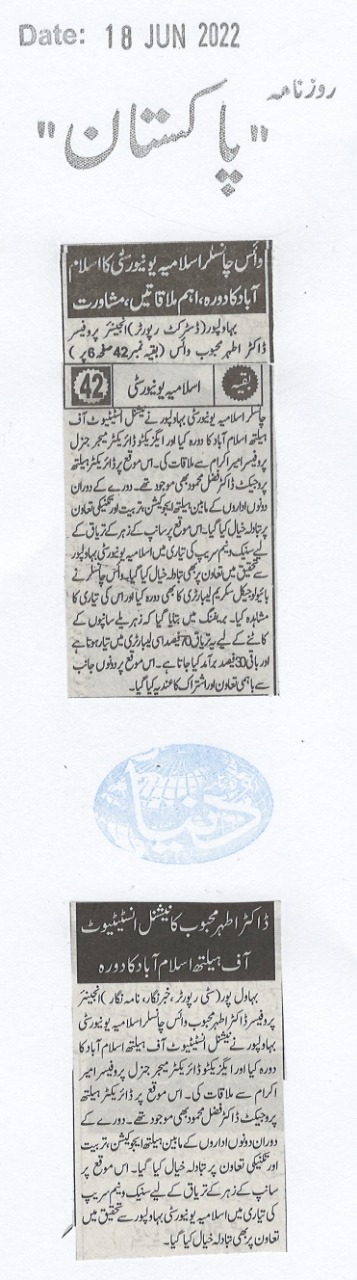 Date: 18 JUN 2022
روزنامہ
"پاکستان"
وائس چانسلر اسلامیہ یونیورسٹی کا اسلام
آباد کا دورہ، اہم ملاقاتیں، مشاورت
بہاولپور (ڈسٹرکٹ رپورٹر) انجینئر پروفیسر
ڈاکٹر اطہر محبوب وائس (بقیہ نمبر 42 صفحہ 6 پر)
بقیہ اسلامیہ یونیورسٹی 42
چانسلر اسلامیہ یونیورسٹی بہاولپور نے نیشنل انسٹیٹیوٹ آف
ہیلتھ اسلام آباد کا دورہ کیا اور ایگزیکٹو ڈائریکٹر میجر جنرل
پروفیسر امیر اکرام سے ملاقات کی۔ اس موقع پر ڈائریکٹر ہیلتھ
پروجیکٹ ڈاکٹر فضل محمود بھی موجود تھے۔ دورے کے دوران
دونوں اداروں کے مابین ہیلتھ ایجوکیشن، تربیت اور تکنیکی تعاون
پر تبادلہ خیال کیا گیا۔ اس موقع پر سانپ کے زہر کے تریاق کے
لیے سنیک وینم سیرپ کی تیاری میں اسلامیہ یونیورسٹی بہاولپور
سے تحقیق میں تعاون پر بھی تبادلہ خیال کیا گیا۔ وائس چانسلر نے
بائیولوجیکل سکریم لیبارٹری کا بھی دورہ کیا اور اس کی تیاری کا
مشاہدہ کیا۔ بریفنگ میں بتایا گیا کہ زہریلے سانپوں کے
کاٹنے کے لیے یہ تریاق 70 فیصد اسی لیبارٹری میں تیار ہوتا ہے
اور باقی 30 فیصد برآمد کیا جاتا ہے۔ اس موقع پر دونوں جانب
سے باہمی تعاون اور اشتراک کا عندیہ کیا گیا۔
دنیا
ڈاکٹر اطہر محبوب کا نیشنل انسٹیٹیوٹ
آف ہیلتھ اسلام آباد کا دورہ
بہاول پور (سٹی رپورٹر، خبر نگار، نامہ نگار) انجینئر
پروفیسر ڈاکٹر اطہر محبوب وائس چانسلر اسلامیہ یونیورسٹی
بہاولپور نے نیشنل انسٹیٹیوٹ آف ہیلتھ اسلام آباد کا
دورہ کیا اور ایگزیکٹو ڈائریکٹر میجر جنرل پروفیسر امیر
اکرام سے ملاقات کی۔ اس موقع پر ڈائریکٹر ہیلتھ
پروجیکٹ ڈاکٹر فضل محمود بھی موجود تھے۔ دورے کے
دوران دونوں اداروں کے مابین ہیلتھ ایجوکیشن، تربیت
اور تکنیکی تعاون پر تبادلہ خیال کیا گیا۔ اس موقع پر
سانپ کے زہر کے تریاق کے لیے سنیک وینم سیرپ
کی تیاری میں اسلامیہ یونیورسٹی بہاولپور سے تحقیق میں
تعاون پر بھی تبادلہ خیال کیا گیا۔